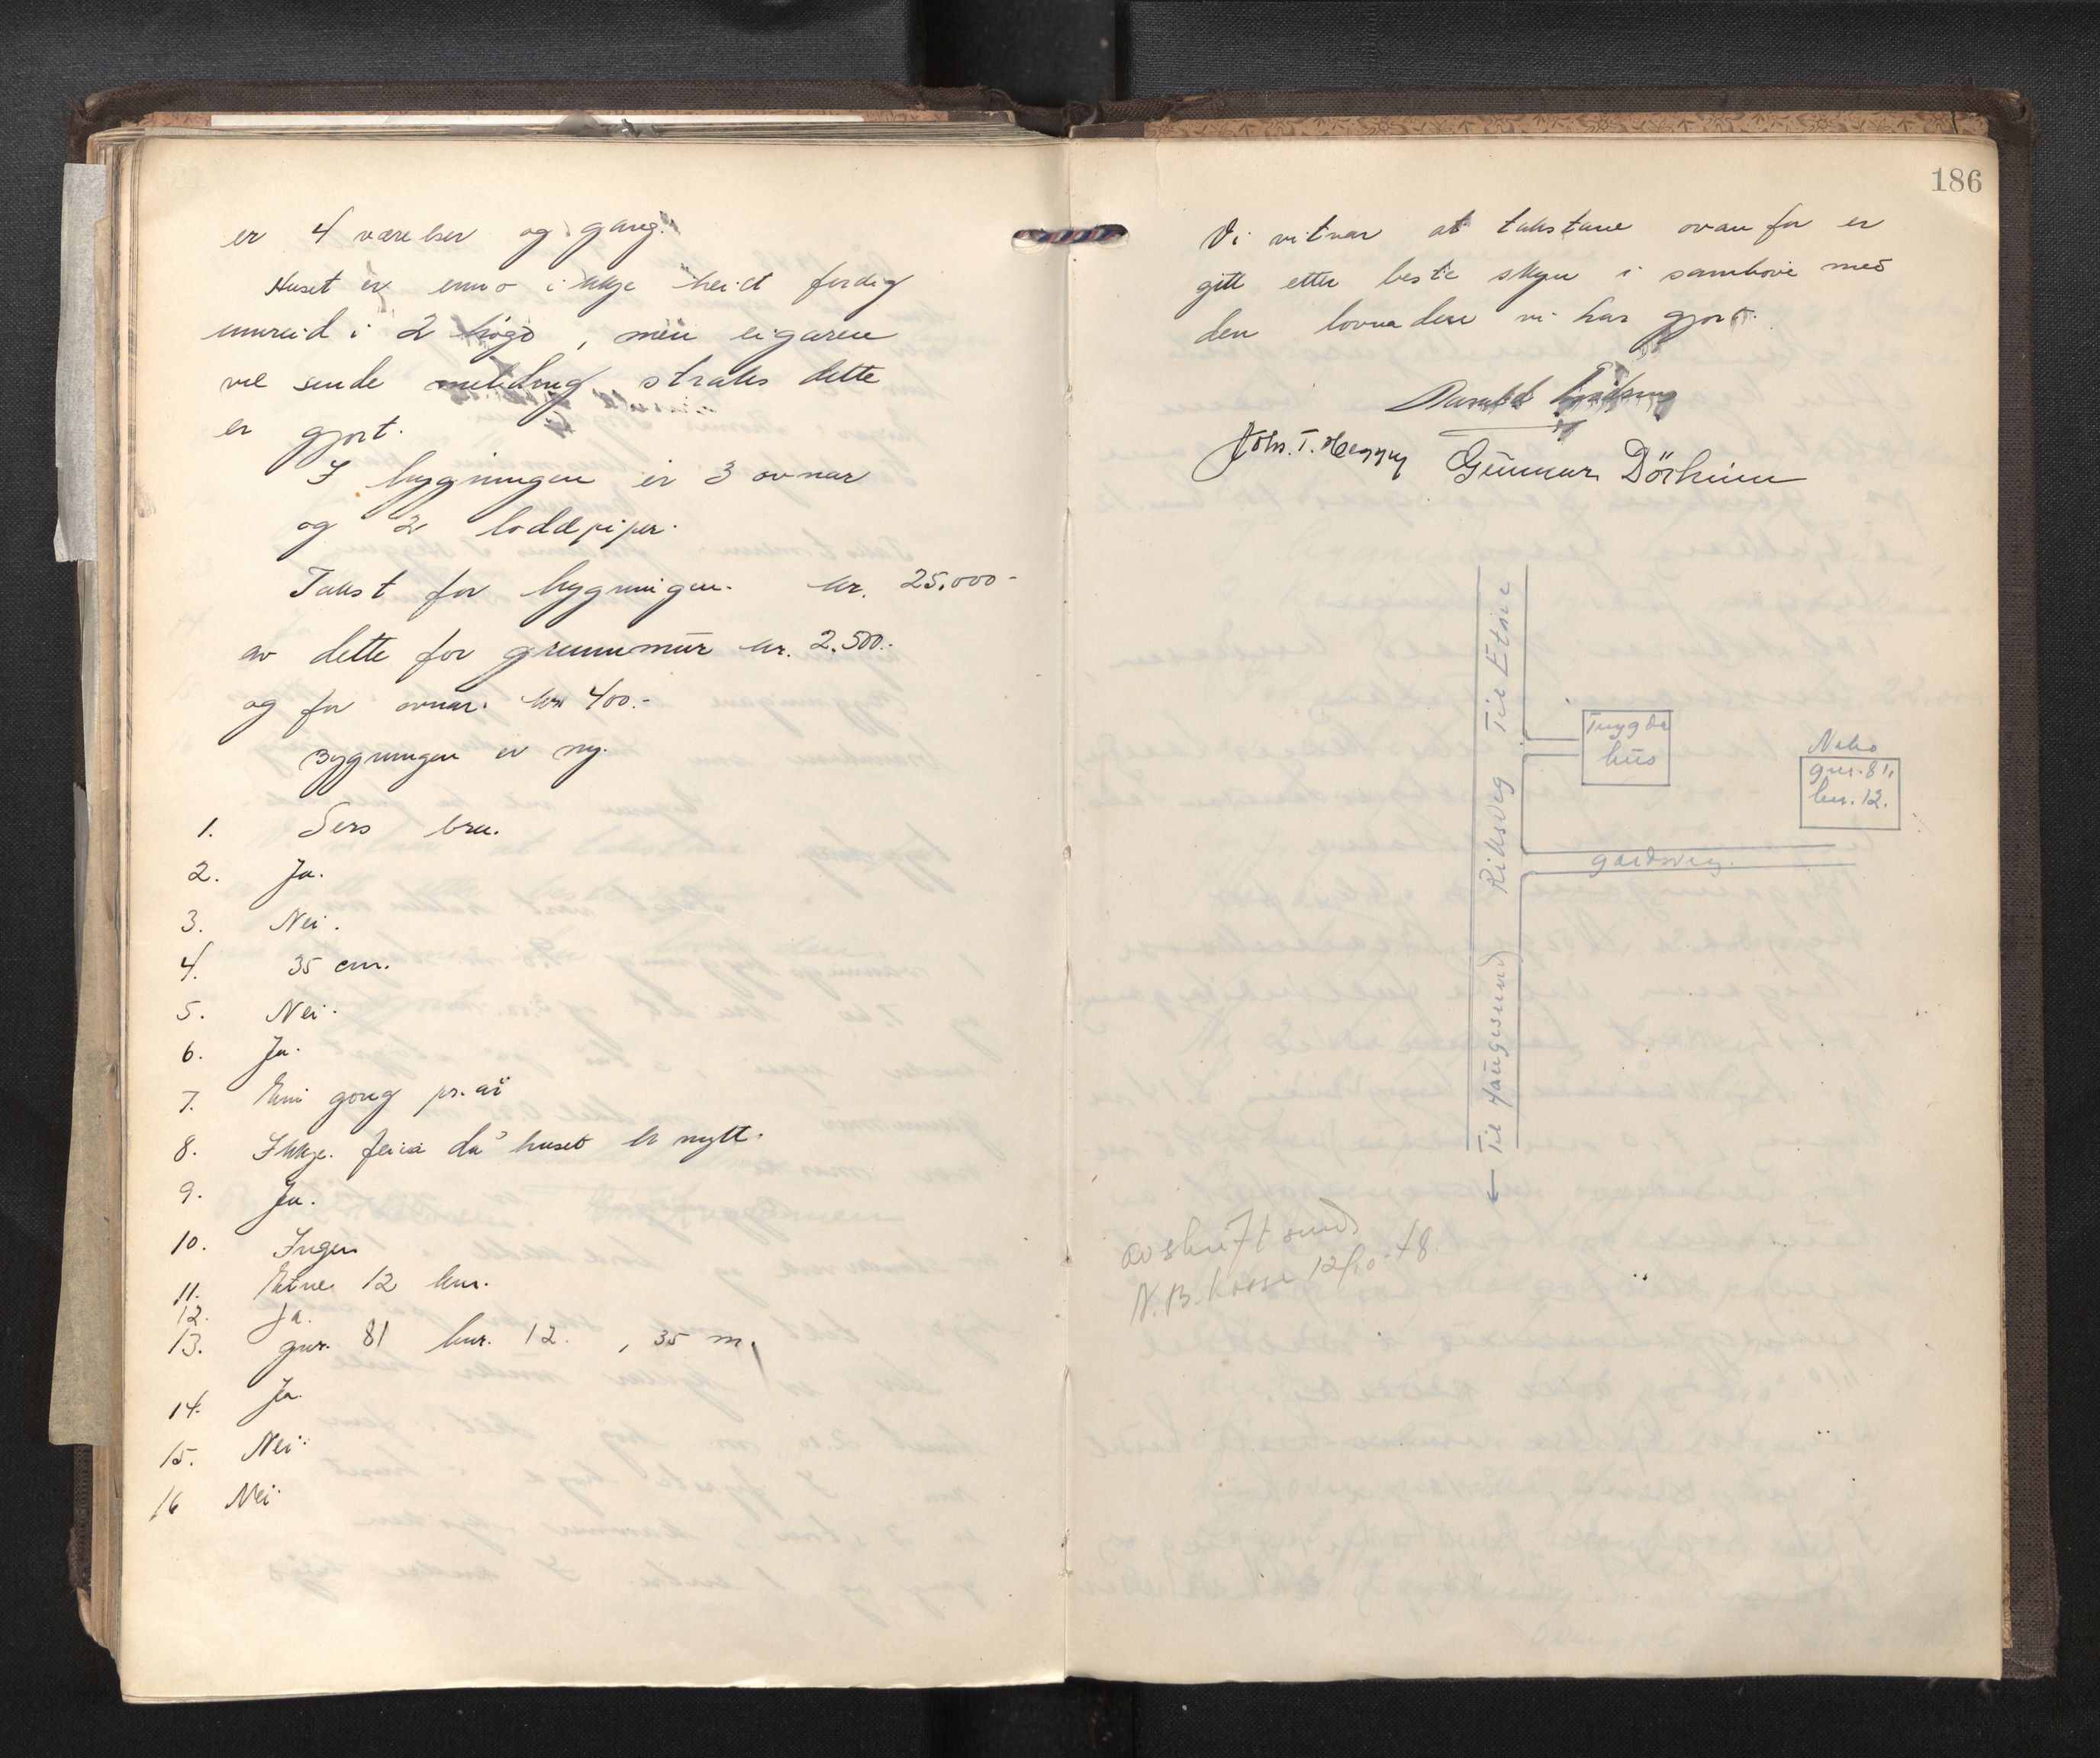 er 4 værelser og gang.
Huset er enno ikkje heidt ferdig
innreid i 2 høgd, men eigaren
vil sende melding straks dette
er gjort.
I bygningen er 3 ovnar
og 2 loddpiper.
Takst for bygningen. kr. 25.000-
av dette for grunnmur kr. 2.500.-
og for ovnar. kr 400.-
Bygningen er ny.
1. Sers bra.
2. Ja.
3. Nei.
4. 35 cm.
5. Nei.
6. Ja.
7. Ein gong pr. år
8. Ikkje feia då huset er nytt.
9. Ja.
10. Ingen
11. Etne 12 km.
12. Ja.
13. gnr. 81 bnr. 12. , 35 m.
14. Ja.
15. Nei.
16 Nei
186
Vi vitnar at takstane ovanfor er
gitt etter beste skyn i samhøve med
den lovnaden vi har gjort.
Johs. T. Gunnar Dörheim
Til Etne
Riksveg
Til Haugesund
Trygda
hus
Nabo
gnr. 81,
bnr. 12.
gardsveg.
avskrift send
N.B. kasse 12/10-48.